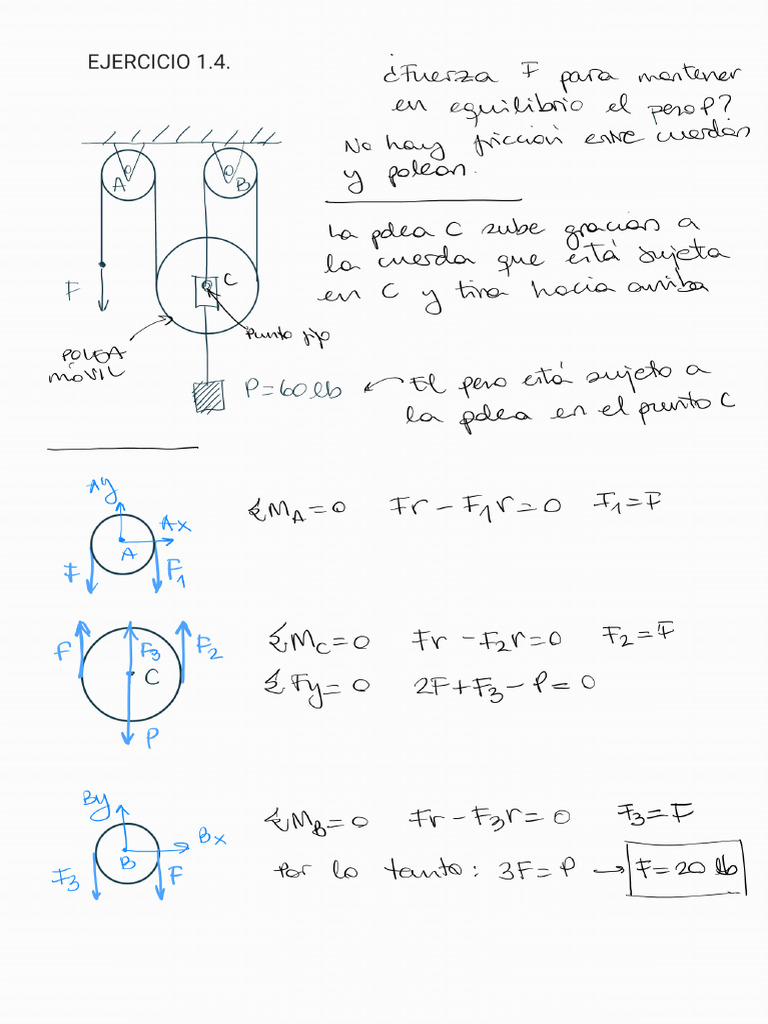 EJERCICIO 1.4.
¿Fuerza F para mantener
en equilibrio el peso P?
No hay fricción entre cuerdas
y poleas.
A
B
C
F
La polea C sube gracias a
la cuerda que está sujeta
en C y tira hacia arriba
Punto fijo
POLEA
MÓVIL
P=60 lb
El peso está sujeto a
la polea en el punto C
Ay
Ax
A
F
F₁
ΣM_A=0 Fr-F₁r=0 F₁=F
F
F₃
F₂
C
P
ΣM_C=0 Fr-F₂r=0 F₂=F
ΣFy=0 2F+F₃-P=0
By
Bx
B
F₃
F
ΣM_B=0 Fr-F₃r=0 F₃=F
Por lo tanto: 3F=P → F=20 lb